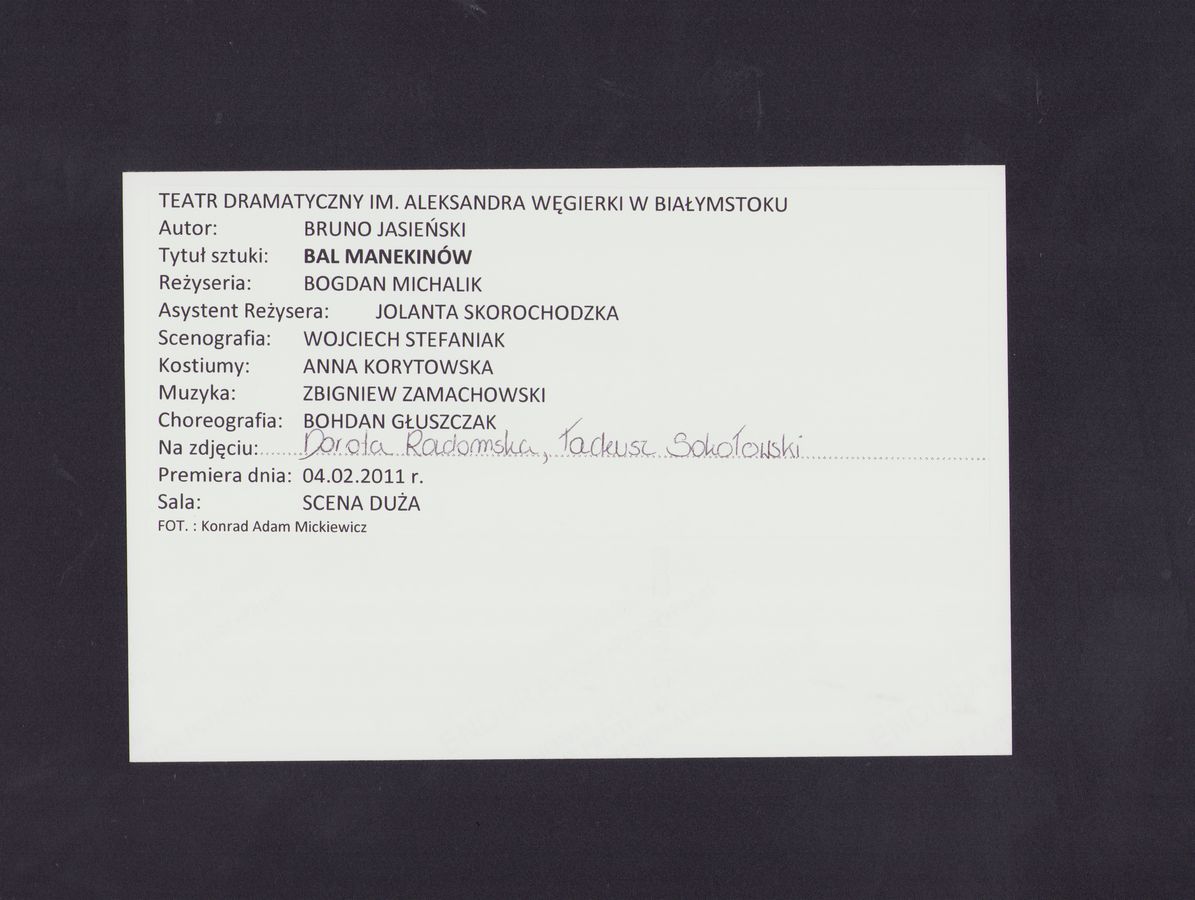 TEATR DRAMATYCZNY IM. ALEKSANDRA WĘGIERKI W BIAŁYMSTOKU
Autor: BRUNO JASIEŃSKI
Tytuł sztuki: BAL MANEKINÓW
Reżyseria: BOGDAN MICHALIK
Asystent Reżysera: JOLANTA SKOROCHODZKA
Scenografia: WOJCIECH STEFANIAK
Kostiumy: ANNA KORYTOWSKA
Muzyka: ZBIGNIEW ZAMACHOWSKI
Choreografia: BOHDAN GŁUSZCZAK
Na zdjęciu: Dorota Radomska, Tadeusz Sokołowski
Premiera dnia: 04.02.2011 r.
Sala: SCENA DUŻA
FOT. : Konrad Adam Mickiewicz